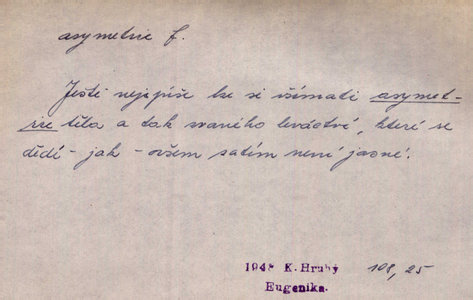 asymetrie f.
Ještě nejspíše lze si všímati asymet-
rie těla a tak zvaného leváctví, které se
dědí - jak - ovšem zatím není jasné.
1948 K. Hrubý 108, 25
Eugenika.